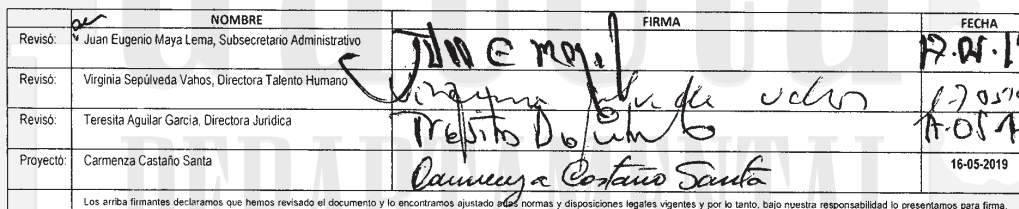 NOMBRE FIRMA FECHA
Revisó: Juan Eugenio Maya Lema, Subsecretario Administrativo
Revisó: Virginia Sepúlveda Vahos, Directora Talento Humano
Revisó: Teresita Aguilar Garcia, Directora Jurídica
Proyectó: Carmenza Castaño Santa Carmenza Castaño Santa 16-05-2019
Los arriba firmantes declaramos que hemos revisado el documento y lo encontramos ajustado a las normas y disposiciones legales vigentes y por lo tanto, bajo nuestra responsabilidad lo presentamos para firma.